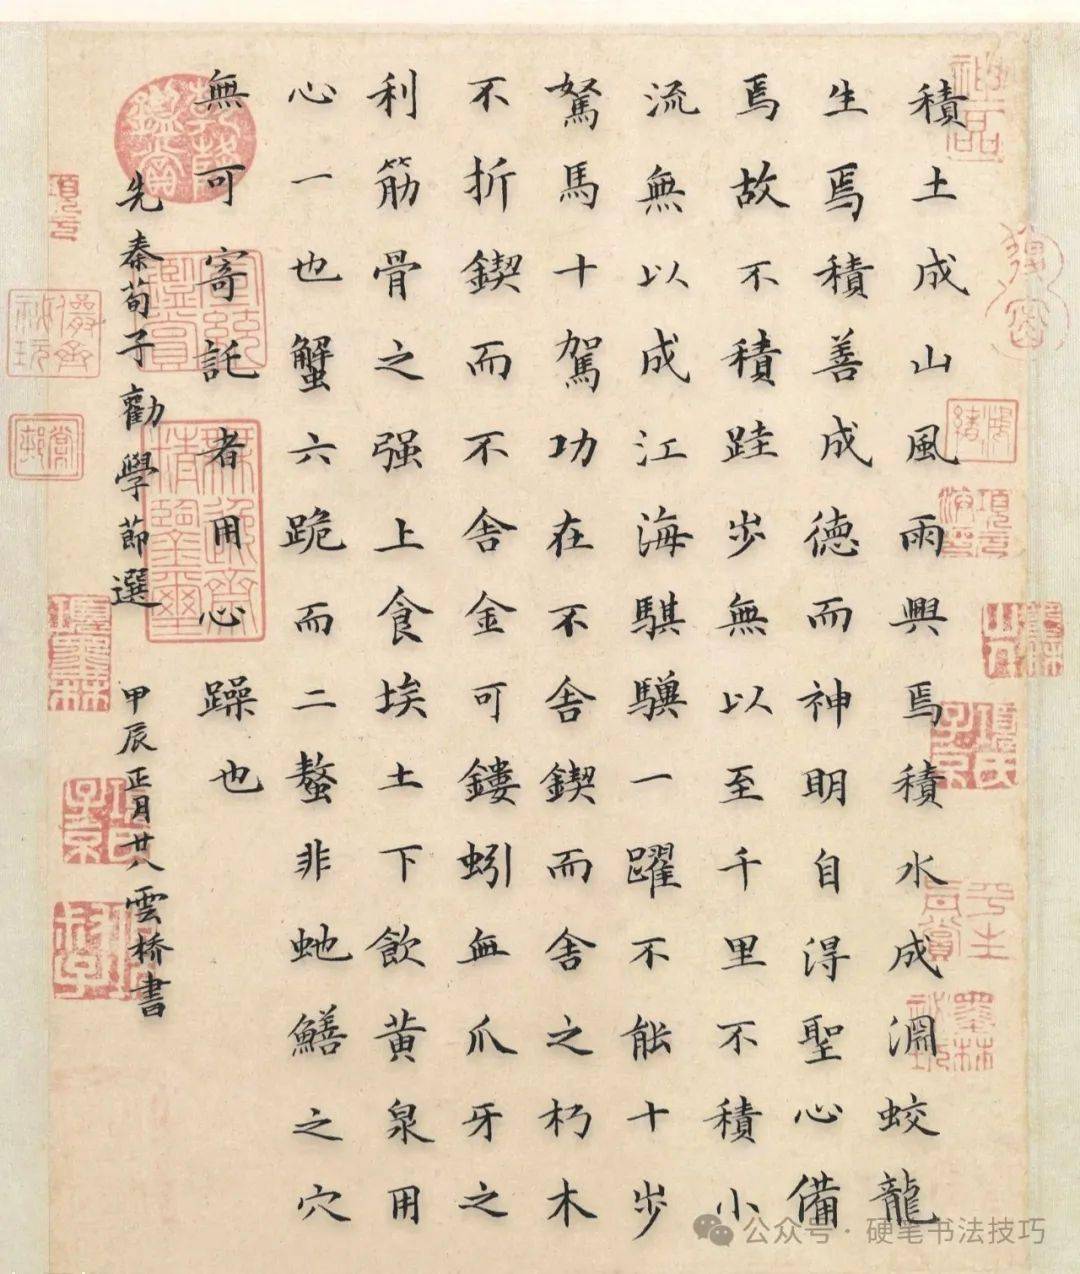 積土成山風雨興焉積水成淵蛟龍
生焉積善成德而神明自得聖心備
焉故不積跬步無以至千里不積小
流無以成江海騏驥一躍不能十步
駑馬十駕功在不舍鍥而舍之朽木
不折鍥而不舍金可鏤蚓無爪牙之
利筋骨之强上食埃土下飲黄泉用
心一也蟹六跪而二螯非虵鱔之穴
無可寄託者用心躁也
先秦荀子勸學節選 甲辰正月廿八雲橋書
公众号·硬笔书法技巧